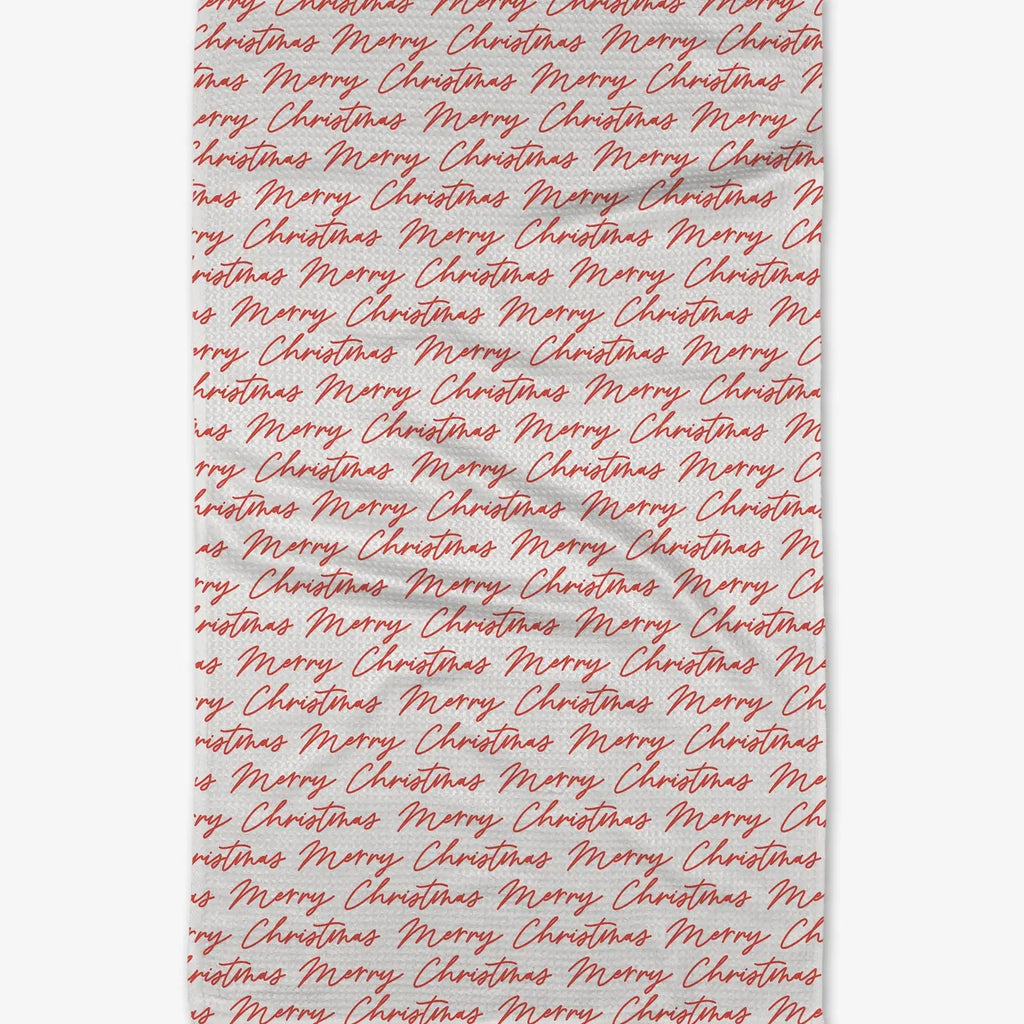 erry Christmas Merry Christmas Merry
Christmas Merry Christmas Merry Christm
tmas Merry Christmas Merry Christmas M
erry Christmas Merry Christmas Merry C
Christmas Merry Christmas Merry Christma
mas Merry Christmas Merry Christmas M
rry Christmas Merry Christmas Merry Ch
ristmas Merry Christmas Merry Christmas
as Merry Christmas Merry Christmas Me
erry Christmas Merry Christmas Merry C
hristmas Merry Christmas Merry Christma
mas Merry Christmas Merry Christmas M
rry Christmas Merry Christmas Merry C
hristmas Merry Christmas Merry Christma
as Merry Christmas Merry Christmas M
rry Christmas Merry Christmas Merry Ch
ristmas Merry Christmas Merry Christmas
as Merry Christmas Merry Christmas Me
ry Christmas Merry Christmas Merry Ch
ristmas Merry Christmas Merry Christmas
s Merry Christmas Merry Christmas Me
ry Christmas Merry Christmas Merry Ch
ristmas Merry Christmas Merry Christmas
as Merry Christmas Merry Christmas Me
ry Christmas Merry Christmas Merry Ch
hristmas Merry Christmas Merry Christmas
as Merry Christmas Merry Christmas Me